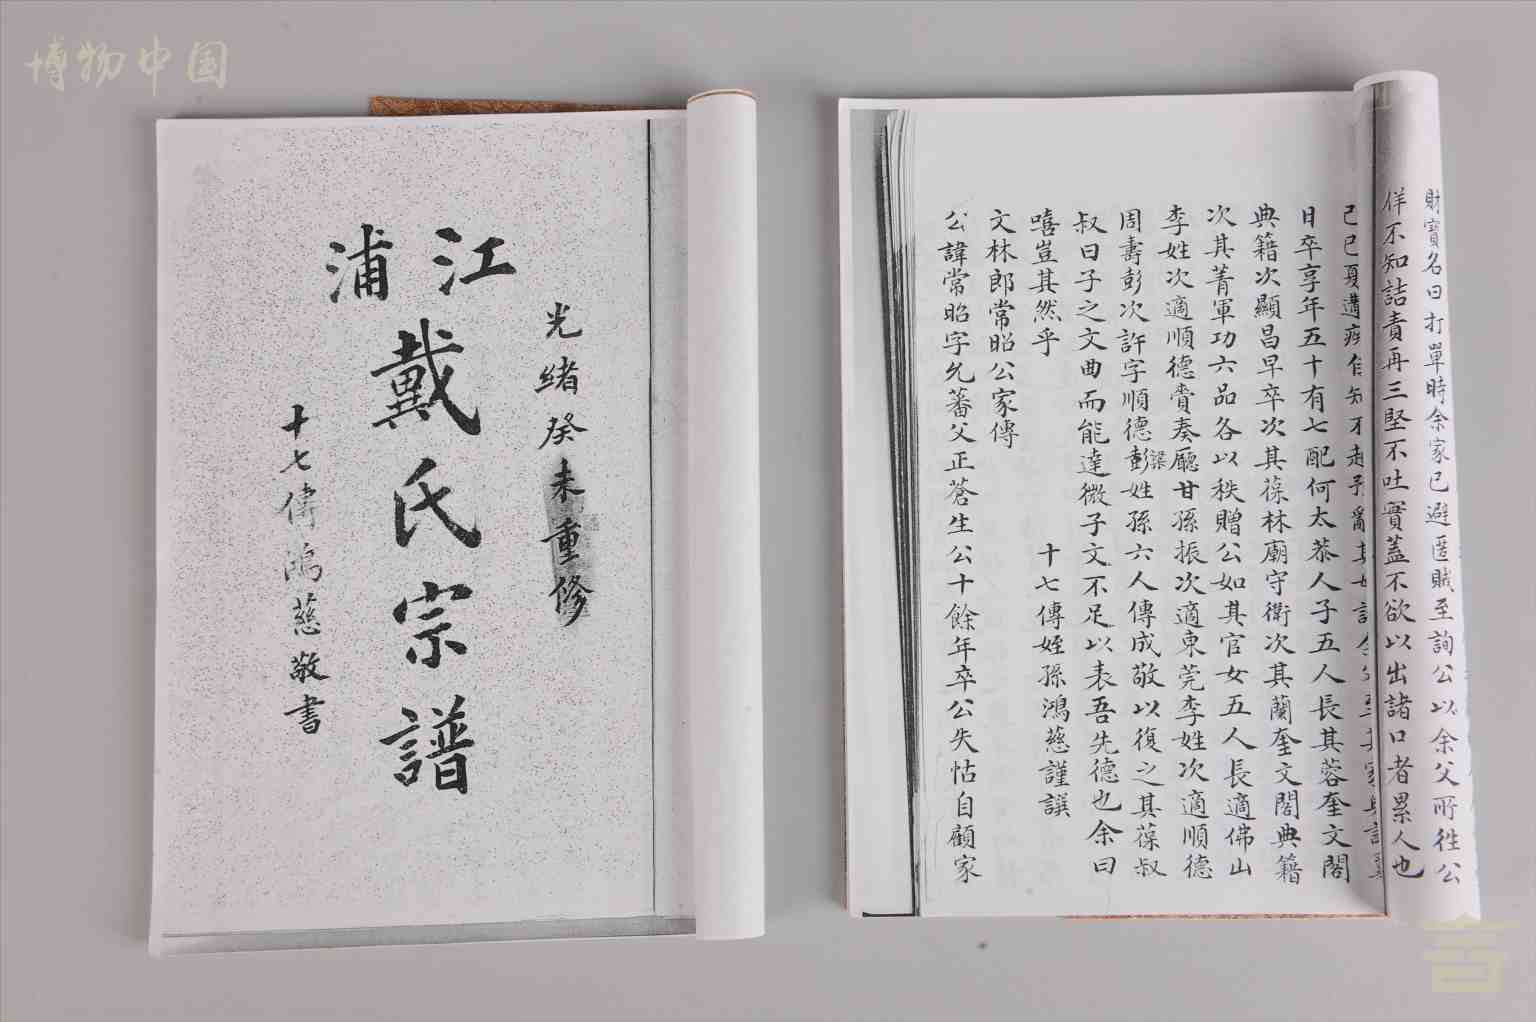 博物中国
光緒癸未重修
江浦
戴氏宗譜
十七傳鴻慈敬書
財寶名曰打單時余家已避匿賊至詢公以余父所往公
佯不知詰責再三堅不吐實蓋不欲以出諸口者累人也
己巳夏遘疾自知不起予
日卒享年五十有七配何太恭人子五人長其蓉奎文閣
典籍次顯昌早卒次其葆林廟守衛次其蘭奎文閣典籍
次其菁軍功六品各以秩贈公如其官女五人長適佛山
李姓次適順德賫奏廳甘孫振次適東莞李姓次適順德
梁
周壽彭次許字順德彭姓孫六人傳成敬以復之其葆叔
叔曰子之文曲而能達微子文不足以表吾先德也余曰
嘻豈其然乎
十七傳姪孫鴻慈謹譔
文林郎常昭公家傳
公諱常昭字允蕃父正蒼生公十餘年卒公失怙自顧家